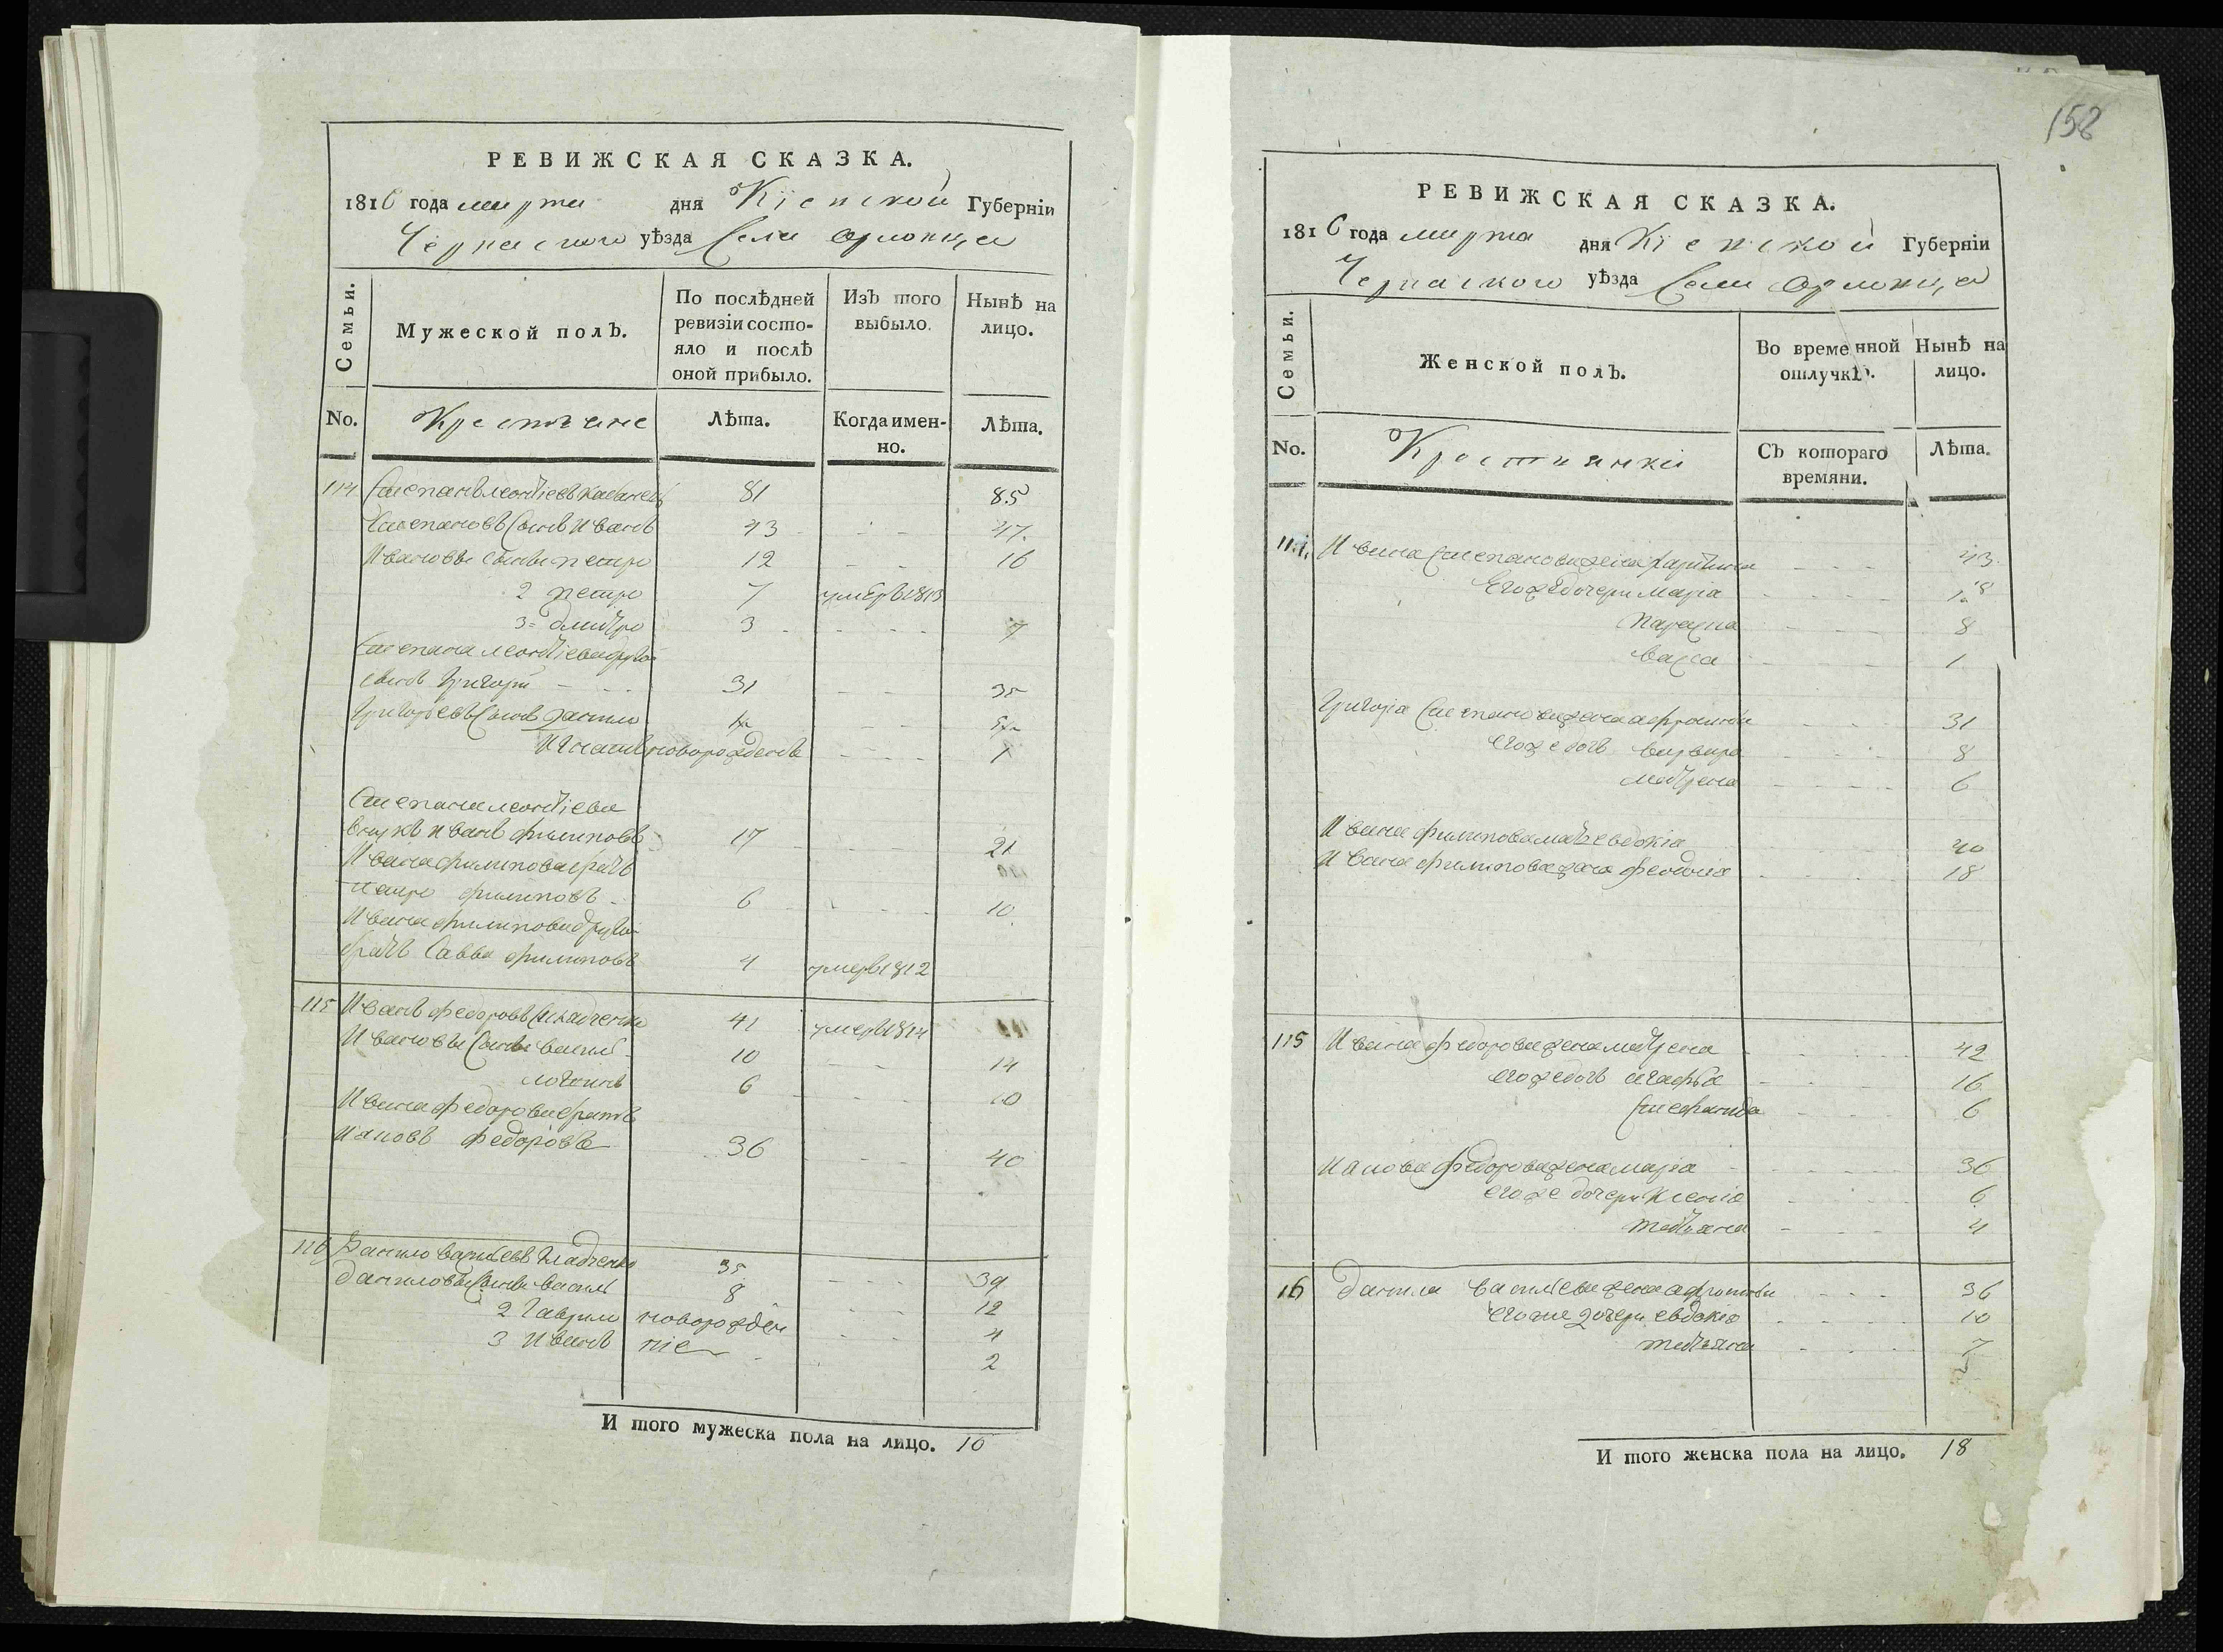 РЕВИЖСКАЯ СКАЗКА.
1816 года марта дня Кіевской Губерніи
Черкаского уѣзда Села Орловца
Семьи.
Мужеской полъ.
По послѣдней ревизіи состояло и послѣ оной прибыло.
Изъ того выбыло.
Нынѣ на лицо.
No. Крестьяне Лѣта. Когда именно. Лѣта.
114 Степанъ Леонтіевъ 81 85
Степановъ Сынъ Иванъ 43 47
Ивановы Сыны Петро 12 16
2 Петро 7 умеръ 1813
3 Дмитро 3 7
Степана Леонтіева другой
сынъ Григорій 31 35
Григорьевъ Сынъ Данило
новорожденъ 1
Степана Леонтіева
внукъ Иванъ Филиповъ 17 21
Ивана Филипова братъ
Петро Филиповъ 6 10
Ивана Филипова другой
братъ Савва Филиповъ 4 умеръ 1812
115 Иванъ Федоровъ 41 умеръ 1814
Ивановы Сыны Василь 10 14
Логвинъ 6 10
Ивана Федорова братъ
Яковъ Федоровъ 36 40
116 Данило Васильевъ Гладченко 35 39
Даниловы Сыны Василь 8 12
2 Гаврило новорожден 4
3 Иванъ ніе 2
И того мужеска пола на лицо. 16
158
РЕВИЖСКАЯ СКАЗКА.
1816 года марта дня Кіевской Губерніи
Черкаского уѣзда Села Орловца
Семьи.
Женской полъ.
Во временной отлучкѣ.
Нынѣ на лицо.
No. Крестьянки Съ котораго времяни. Лѣта.
114 Ивана Степанова жена 43
Его же дочери Марія 18
Параска 8
Васса 1
Григорія Степанова жена 31
его же дочь Варвара 8
Матрена 6
Ивана Филипова мать Евдокія 40
Ивана Филипова жена Феодосія 18
115 Ивана Федорова жена Матрена 42
его же дочь Агафья 16
Стефанида 6
Якова Федорова жена Марія 36
его же дочери Ксенія 6
Татьяна 4
16 Данила Васильева жена 36
его же дочери Евдокія 10
Татьяна 7
И того женска пола на лицо. 18